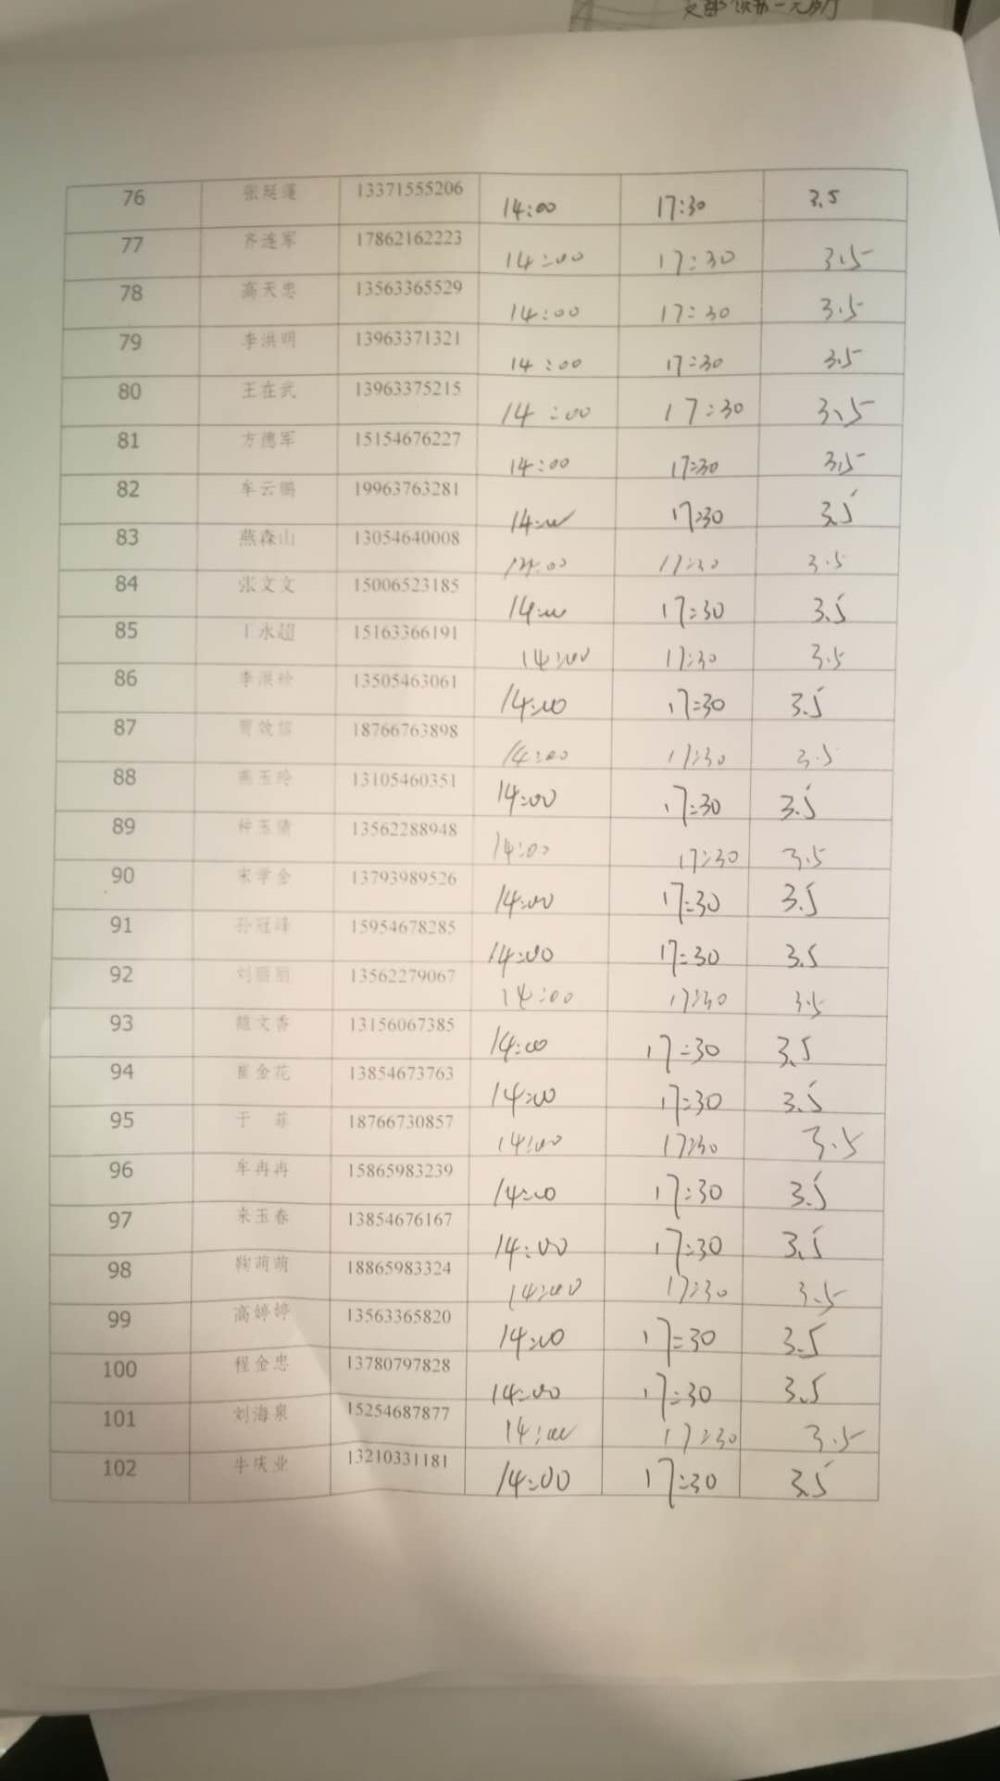 76 张延莲 13371555206 14:00 17:30 3.5
77 齐连军 17862162223 14:00 17:30 3.5
78 高天忠 13563365529 14:00 17:30 3.5
79 李洪明 13963371321 14:00 17:30 3.5
80 王在武 13963375215 14:00 17:30 3.5
81 方德军 15154676227 14:00 17:30 3.5
82 牟云鹏 19963763281 14:00 17:30 3.5
83 燕森山 13054640008 14:00 17:30 3.5
84 张文文 15006523185 14:00 17:30 3.5
85 丁永超 15163366191 14:00 17:30 3.5
86 13505463061 14:00 17:30 3.5
87 18766763898 14:00 17:30 3.5
88 燕玉玲 13105460351 14:00 17:30 3.5
89 13562288948 14:00 17:30 3.5
90 宋学金 13793989526 14:00 17:30 3.5
91 孙冠峰 15954678285 14:00 17:30 3.5
92 刘丽丽 13562279067 14:00 17:30 3.5
93 13156067385 14:00 17:30 3.5
94 崔金花 13854673763 14:00 17:30 3.5
95 于 菲 18766730857 14:00 17:30 3.5
96 牟冉冉 15865983239 14:00 17:30 3.5
97 来玉春 13854676167 14:00 17:30 3.5
98 鞠萌萌 18865983324 14:00 17:30 3.5
99 高婷婷 13563365820 14:00 17:30 3.5
100 程金忠 13780797828 14:00 17:30 3.5
101 刘海泉 15254687877 14:00 17:30 3.5
102 牛庆业 13210331181 14:00 17:30 3.5